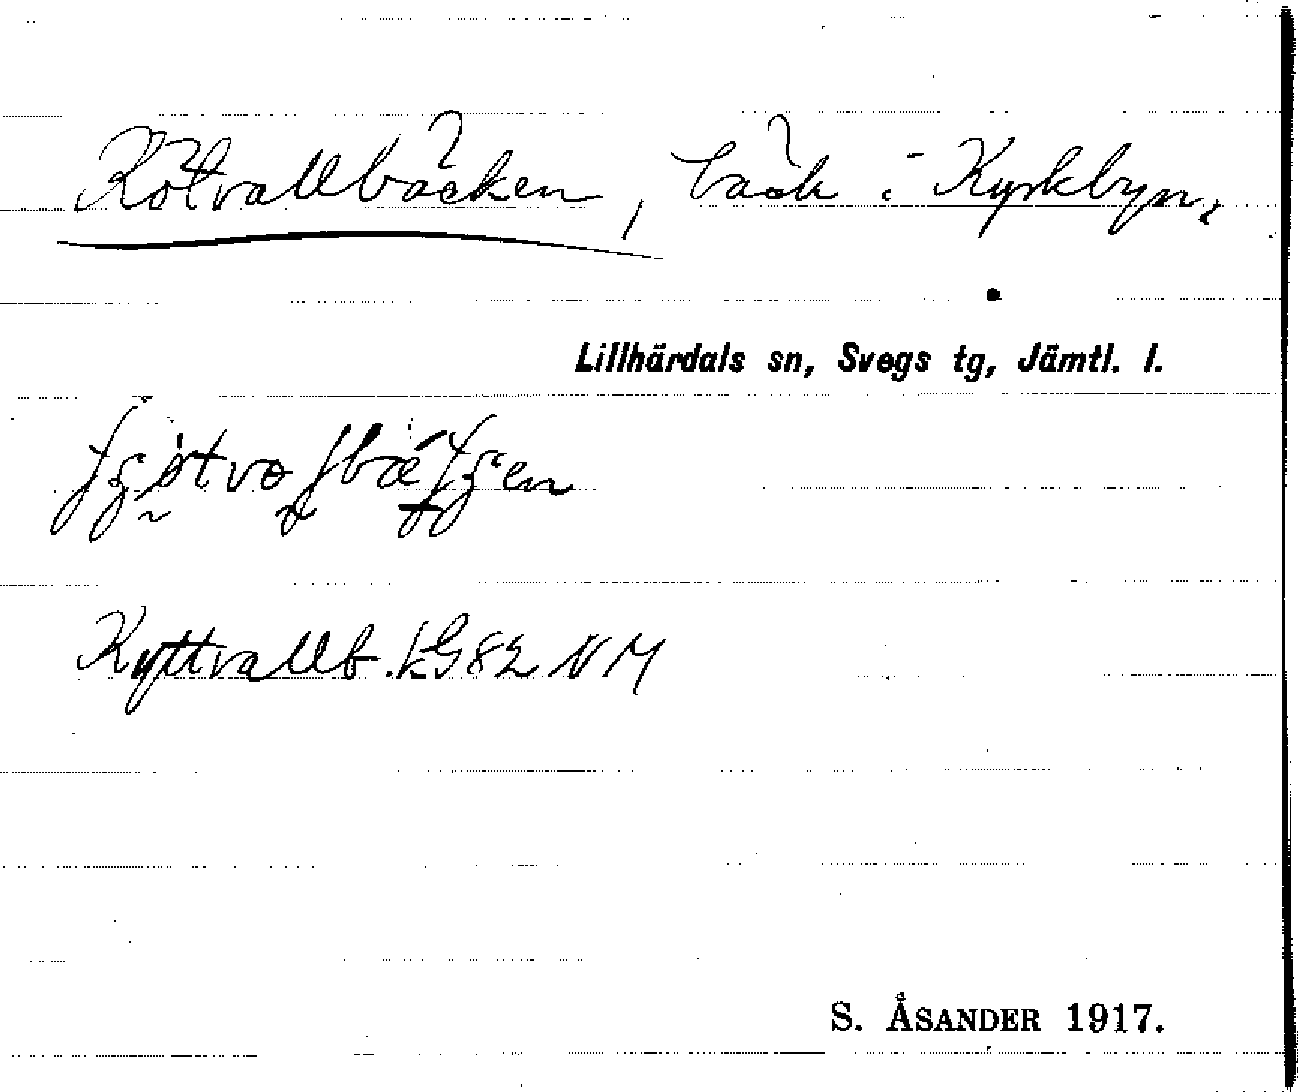 Kötvallbäcken, bäck i Kyrkbyn,
Lillhärdals sn, Svegs tg, Jämtl. l.
Kyttvallb. LG 82 NM
S. ÅSANDER 1917.